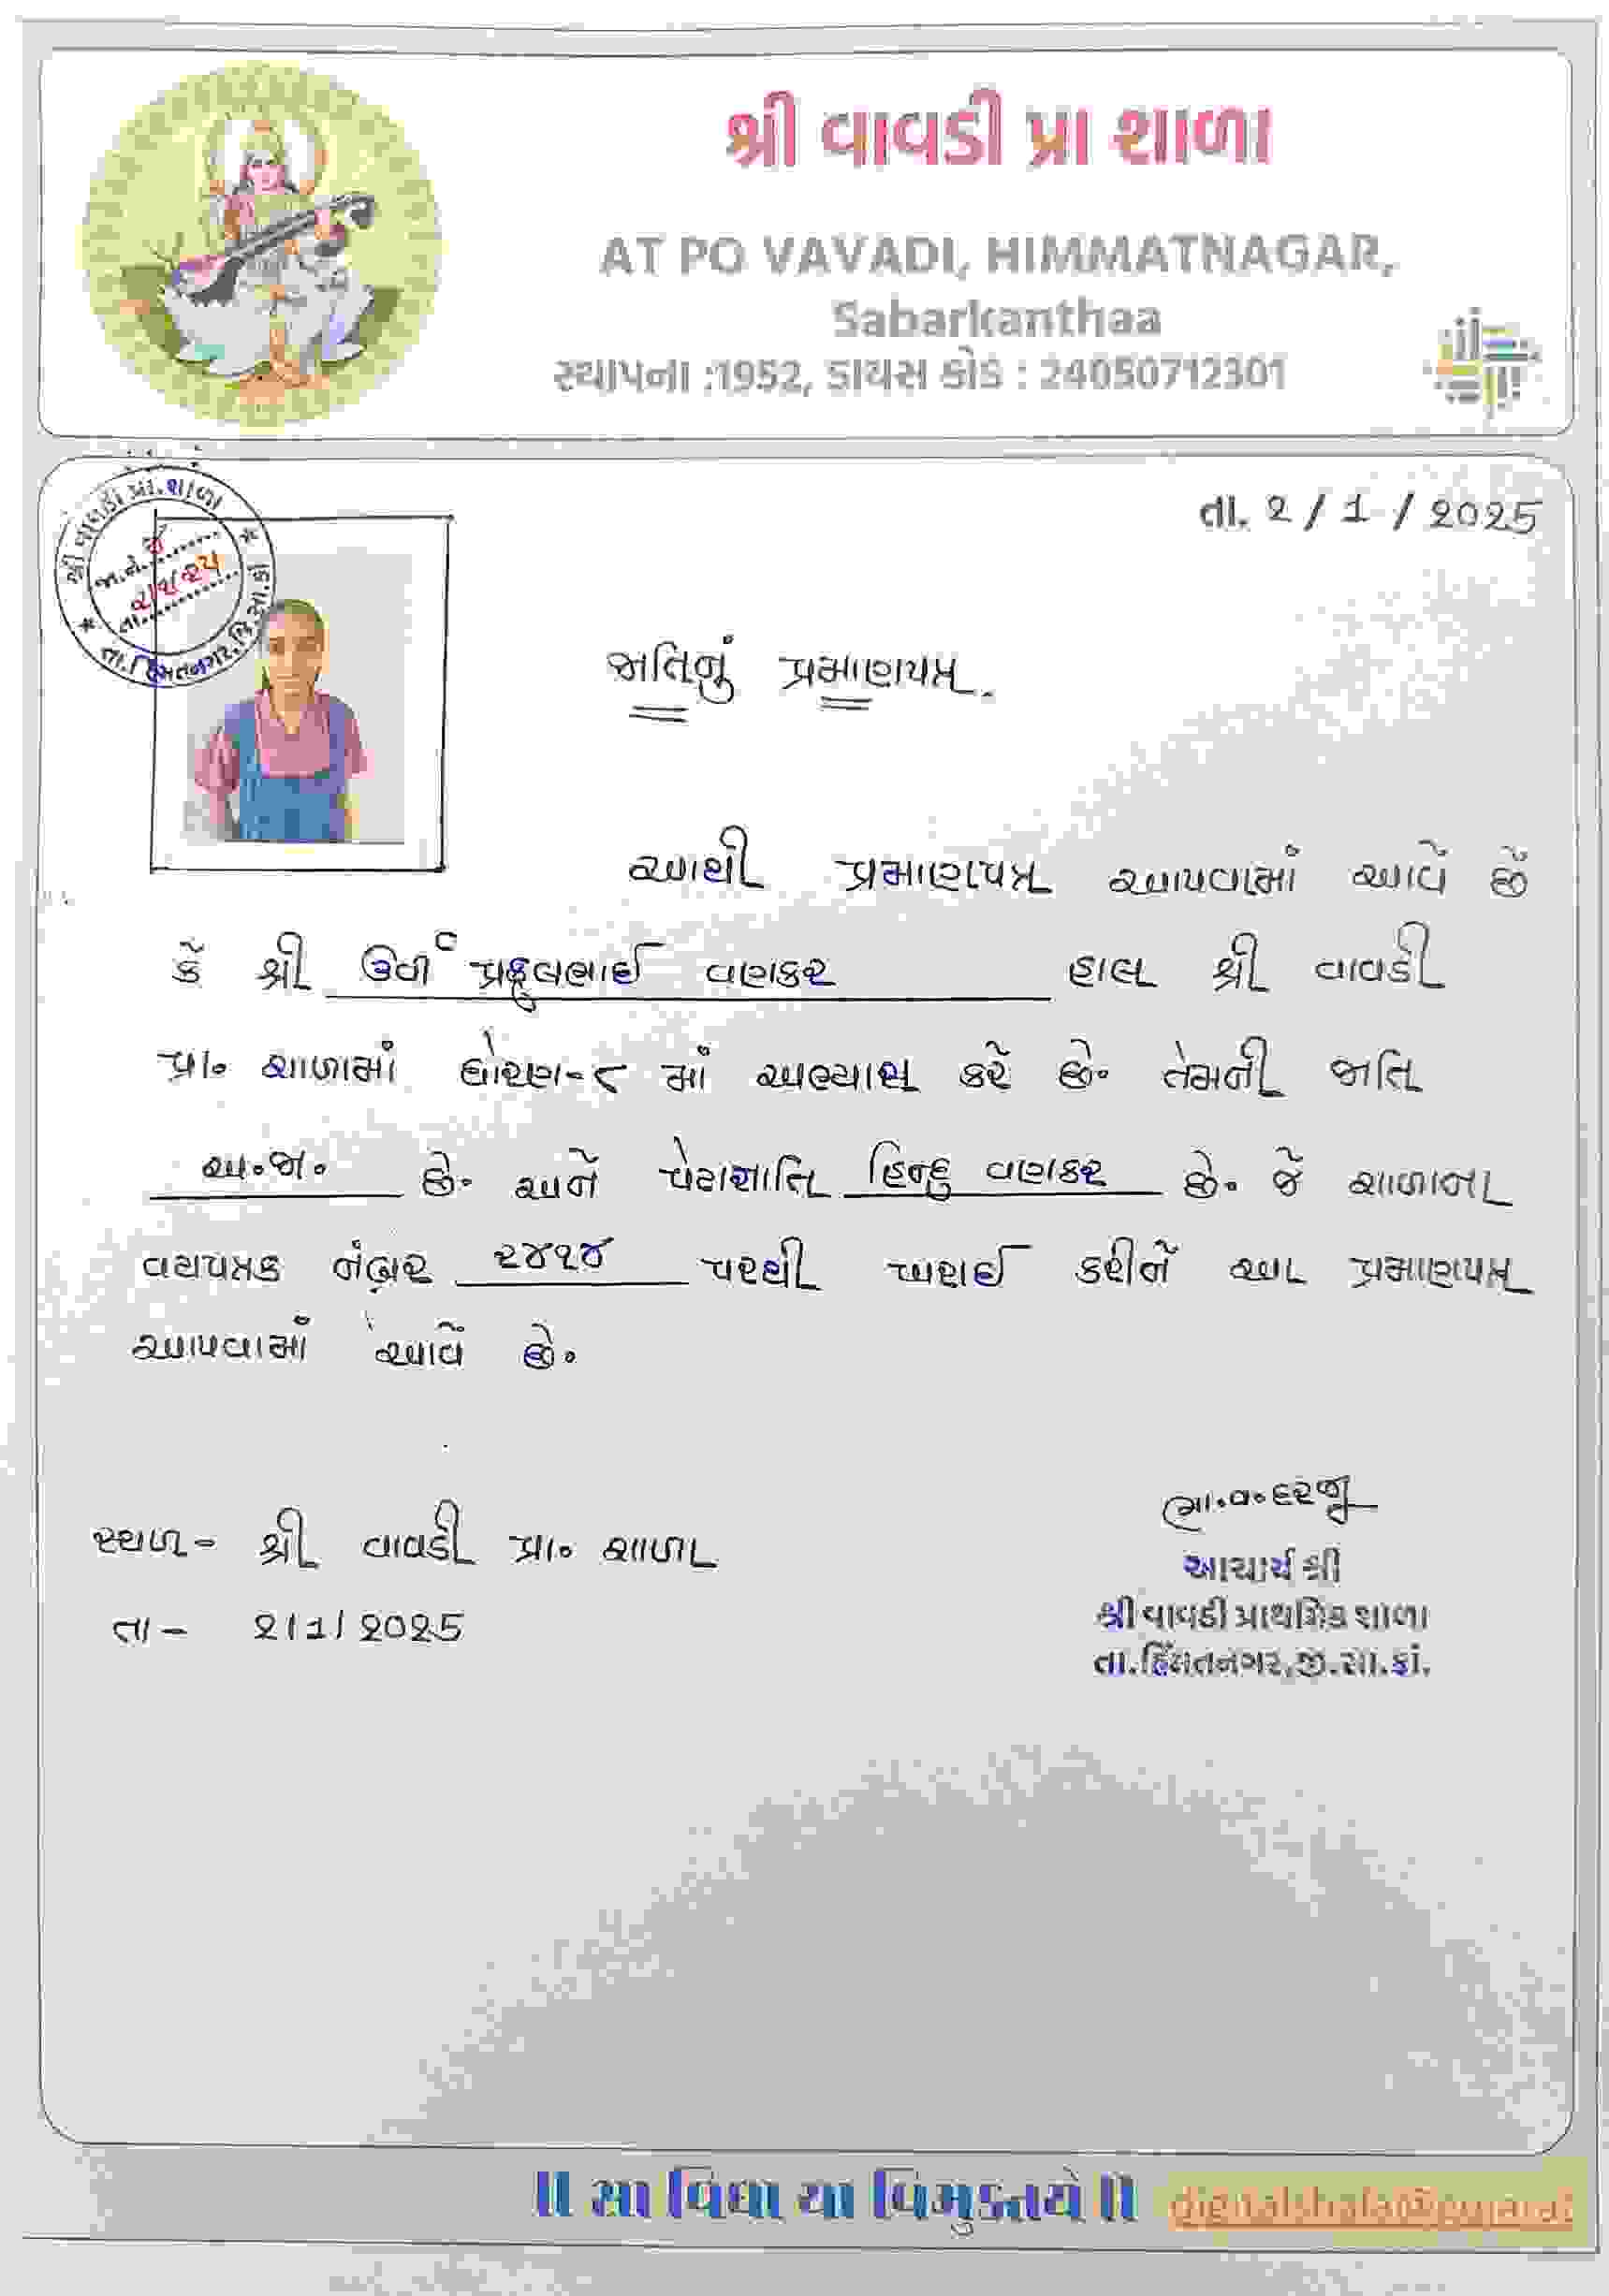 શ્રી વાવડી પ્રા શાળા
AT PO VAVADI, HIMMATNAGAR,
Sabarkanthaa
સ્થાપના :1952, ડાયસ કોડ : 24050712301
શ્રી વાવડી પ્રા.શાળા
જા.નં.
તા. ૨/૧/૨૫
તા.હિંમતનગર,જિ.સા.કાં
તા. ૨ / 1 / ૨૦૨5
જાતિનું પ્રમાણપત્ર.
આથી પ્રમાણપત્ર આપવામાં આવે છે
કે શ્રી ઉર્વી પ્રફુલભાઈ વણકર હાલ શ્રી વાવડી
પ્રા. શાળામાં ધોરણ-૮ માં અભ્યાસ કરે છે. તેમની જાતિ
અ.જા. છે. અને પેટાજ્ઞાતિ હિન્દુ વણકર છે. જે શાળાના
વયપત્રક નંબર ૨૪૧૪ પરથી ખરાઈ કરીને આ પ્રમાણપત્ર
આપવામાં આવે છે.
ભા.વ.દરજી
સ્થળ- શ્રી વાવડી પ્રા. શાળા
આચાર્ય શ્રી
શ્રી વાવડી પ્રાથમિક શાળા
તા - ૨/1/૨૦૨5
તા.હિંમતનગર,જી.સા.કાં.
॥ સા વિદ્યા યા વિમુક્તયે ॥ digitalshala@gujarat